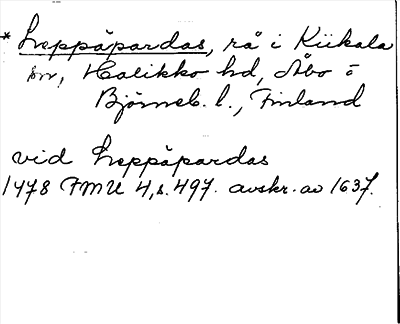 * Leppäpardas, rå i Kiikala
sn, Halikko hd, Åbo o
Björneb. l., Finland
vid Leppäpardas
1478 FMU 4, s. 497. avskr. av 1637.